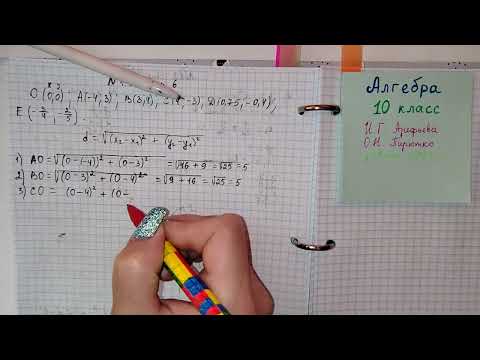 N 6
x y
O(0;0); A(-4;3); B(3;4); -3), D(0,75;-0,4);
E(-3/4; -2/5).
d = √(x₂-x₁)² + (y₂-y₁)²
1) AO = √(0-(-4))² + (0-3)² = √16+9 = √25 = 5
2) BO = √(0-3)² + (0-4)² = √9+16 = √25 = 5
3) CO = (0-4)² + (0-
Алгебра
10 класс
И.Г. Арефьева
О.Н. Пирютко